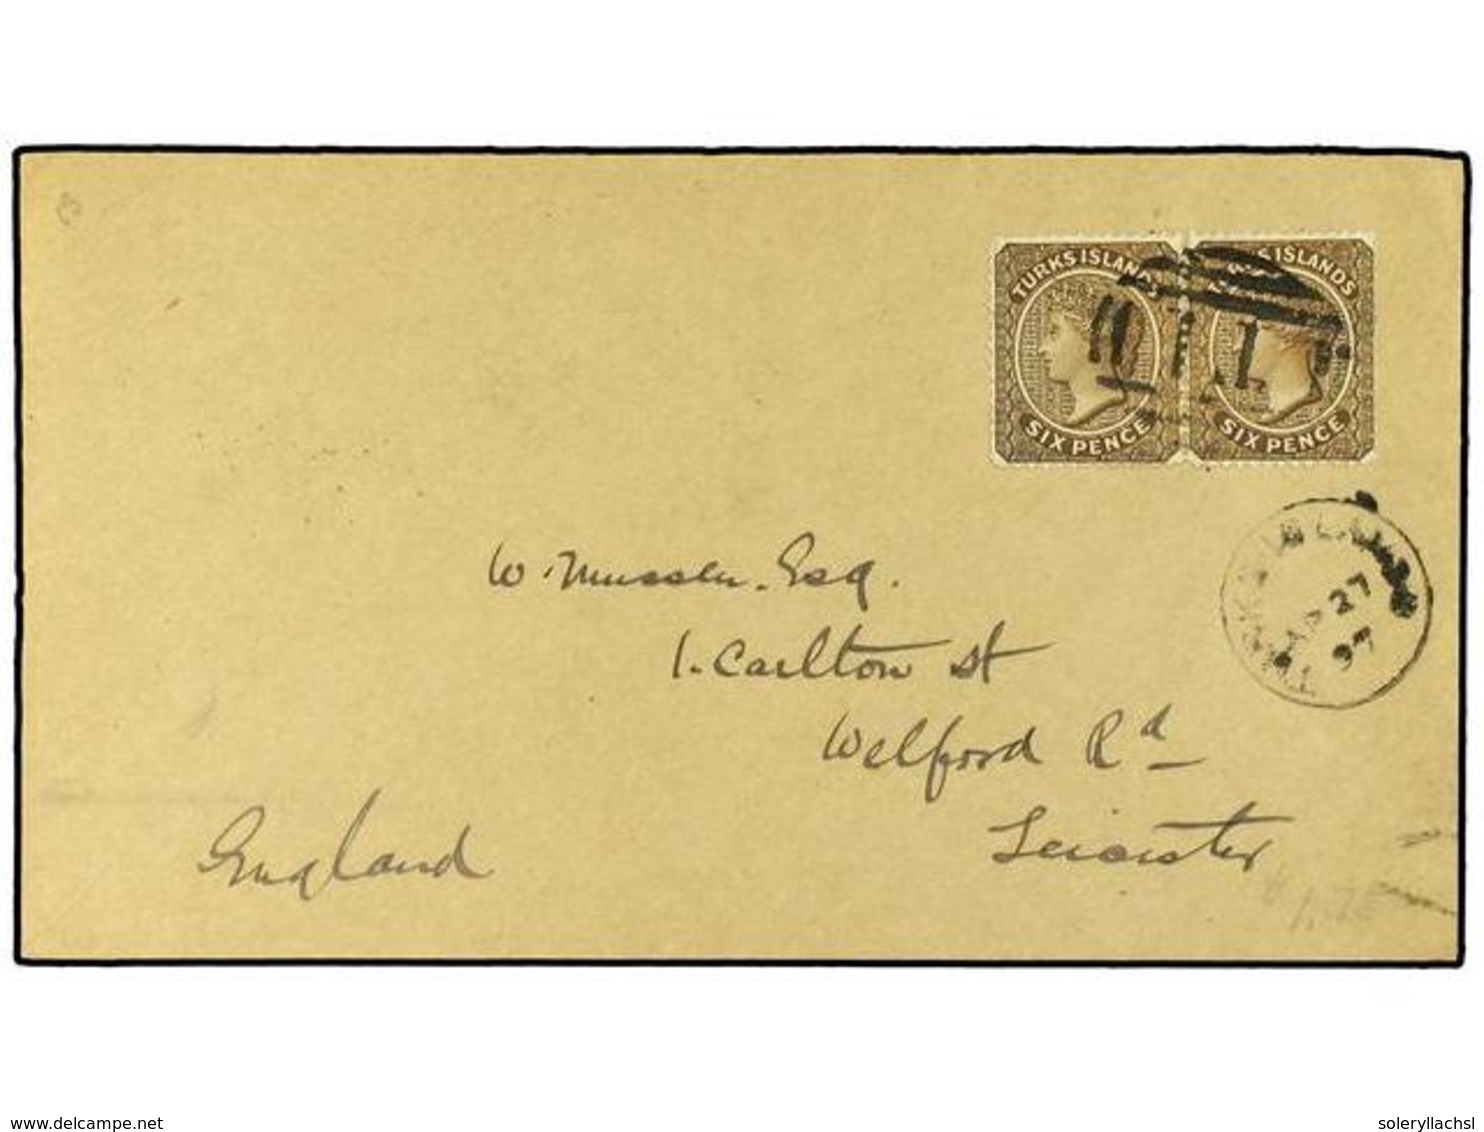 TURKS ISLANDS
SIX PENCE
TURKS ISLANDS
SIX PENCE
T.I.
TURKS ISLANDS
AP 27
97
W. Mussen. Esq.
1. Carlton St
Welford Rd
Leicester
England
delcampe.net
soleryllachsl